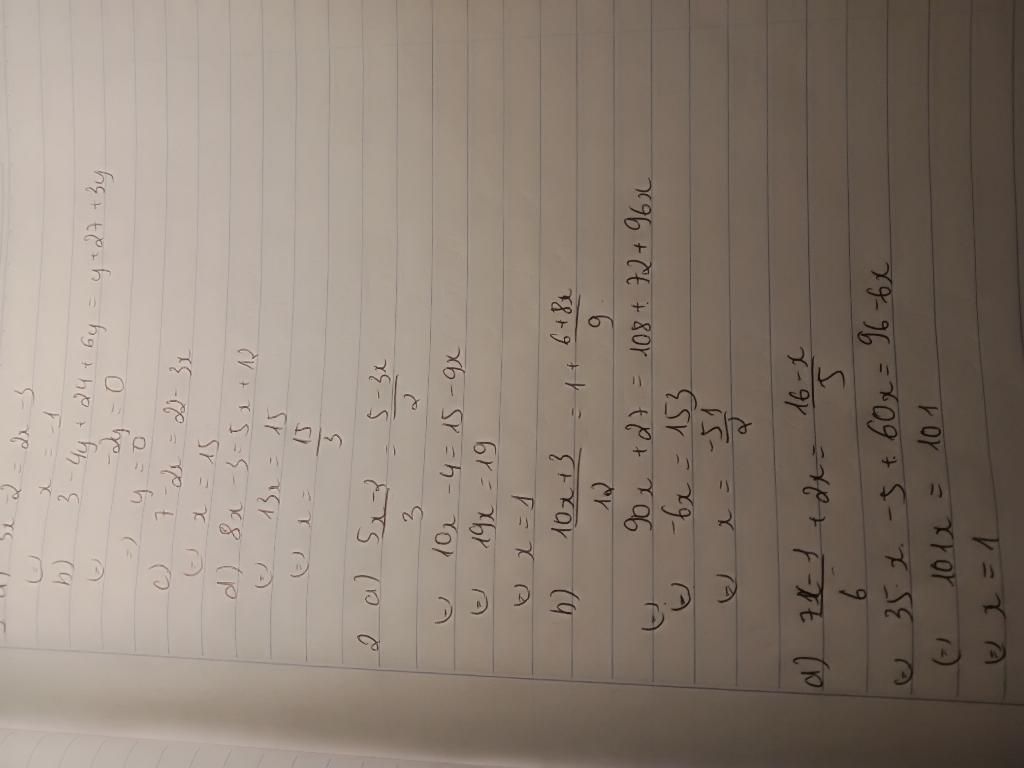 a) 3x-2 = 2x-3
(=) x = -1
b) 3-4y+24+6y = y+27+3y
(=) -2y = 0
=) y = 0
c) 7-2x = 22-3x
(=) x = 15
d) 8x-3 = 5x+12
(=) 13x = 15
(=) x = 15/3
2 a) (5x-2)/3 = (5-3x)/2
(=) 10x-4 = 15-9x
(=) 19x = 19
(=) x = 1
b) (10x+3)/12 = 1 + (6+8x)/9
(=) 90x+27 = 108+72+96x
(=) -6x = 153
(=) x = -51/2
d) (7x-1)/6 + 2x = (16-x)/5
(=) 35x-5+60x = 96-6x
(=) 101x = 101
(=) x = 1